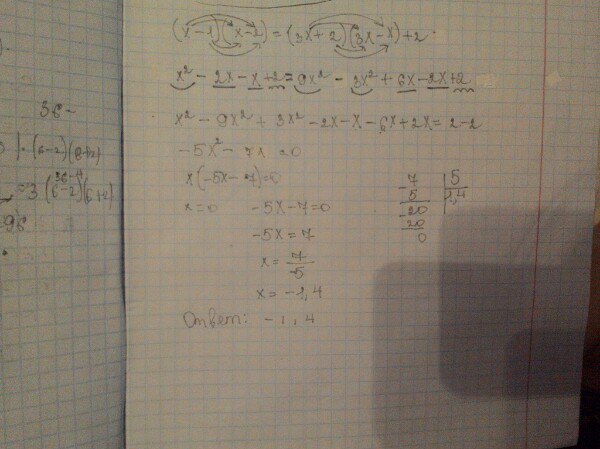 (x-1)(x-2)=(3x+2)(3x-x)+2
x²-2x-x+2=9x²-3x²+6x-2x+2
x²-9x²+3x²-2x-x-6x+2x=2-2
-5x²-7x=0
x(-5x-7)=0
x=0 -5x-7=0
-5x=7
x=7/-5
x=-1,4
Ответ: -1,4
7 5
5 1,4
20
20
0
36-
(6-2)(6+2)
36-4
=3(6-2)(6+2)
=96